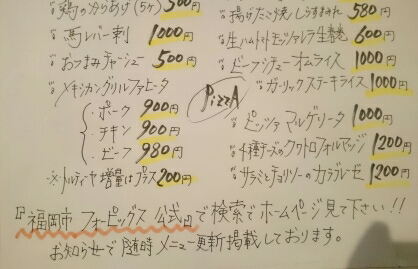 鶏のからあげ(5ヶ) 500円
馬レバー刺 1000円
おつまみチャーシュー 500円
メキシカングリルファヒータ
ポーク 900円
チキン 900円
ビーフ 980円
※トルティーヤ増量はプラス200円
揚げたこ焼し 580円
生ハムトマトモッツァレラ生春巻 600円
ビーフシチューオムライス 1000円
ガーリックステーキライス 1000円
PizzA
ピッツァ マルゲリータ 1000円
4種チーズのクワトロフォルマッジ 1200円
サラミとチョリソーのカラブレーゼ 1200円
『福岡市 フォーピッグス 公式』で検索でホームページ見て下さい!!
お知らせで随時メニュー更新掲載しております。